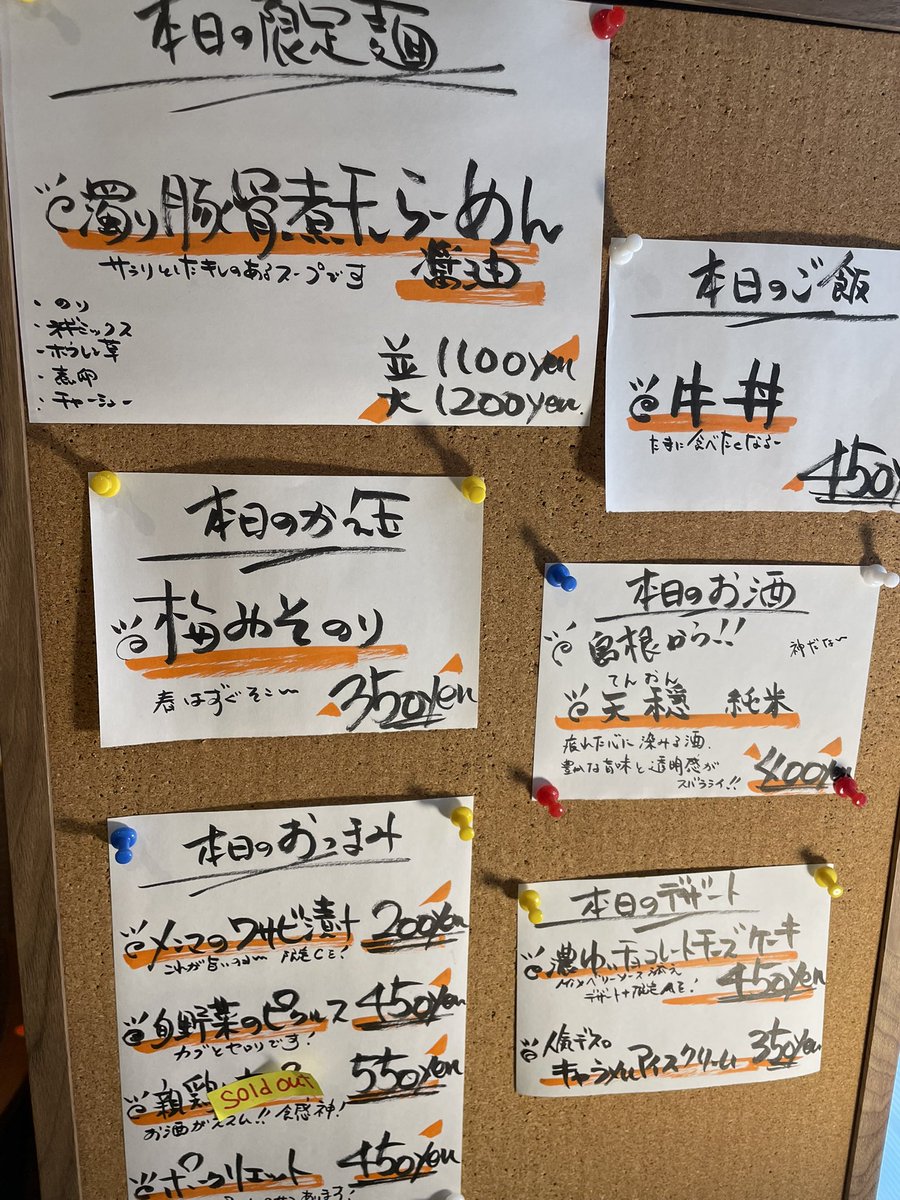 本日の限定麺
濁り豚骨煮干しらーめん
醤油
サラリとしたキレのあるスープです
・のり
ミックス
・ホウレン草
・煮卵
・チャーシュー
並 1100yen
大 1200yen.
本日のご飯
牛丼
たまに食べたくなる〜
450y
本日のかん缶
梅みそのり
春はすぐそこ〜
350yen
本日のお酒
島根から!!
神だな〜
てんおん
天穏 純米
疲れた心に染みる酒.
豊かな旨味と透明感が
スバラシイ!!
400yen
本日のおつまみ
メンマのワサビ漬け 200yen
これが旨いね〜
旬野菜のピクルス 450yen
カブとセロリです!
親鶏
Sold out
550yen
お酒がススム!! 食感神!
ポークリエット 450yen
本日のデザート
濃ゆいチョコレートチーズケーキ
Mixベリーソース添え
450yen
人気デス。
キャラメルアイスクリーム 350yen